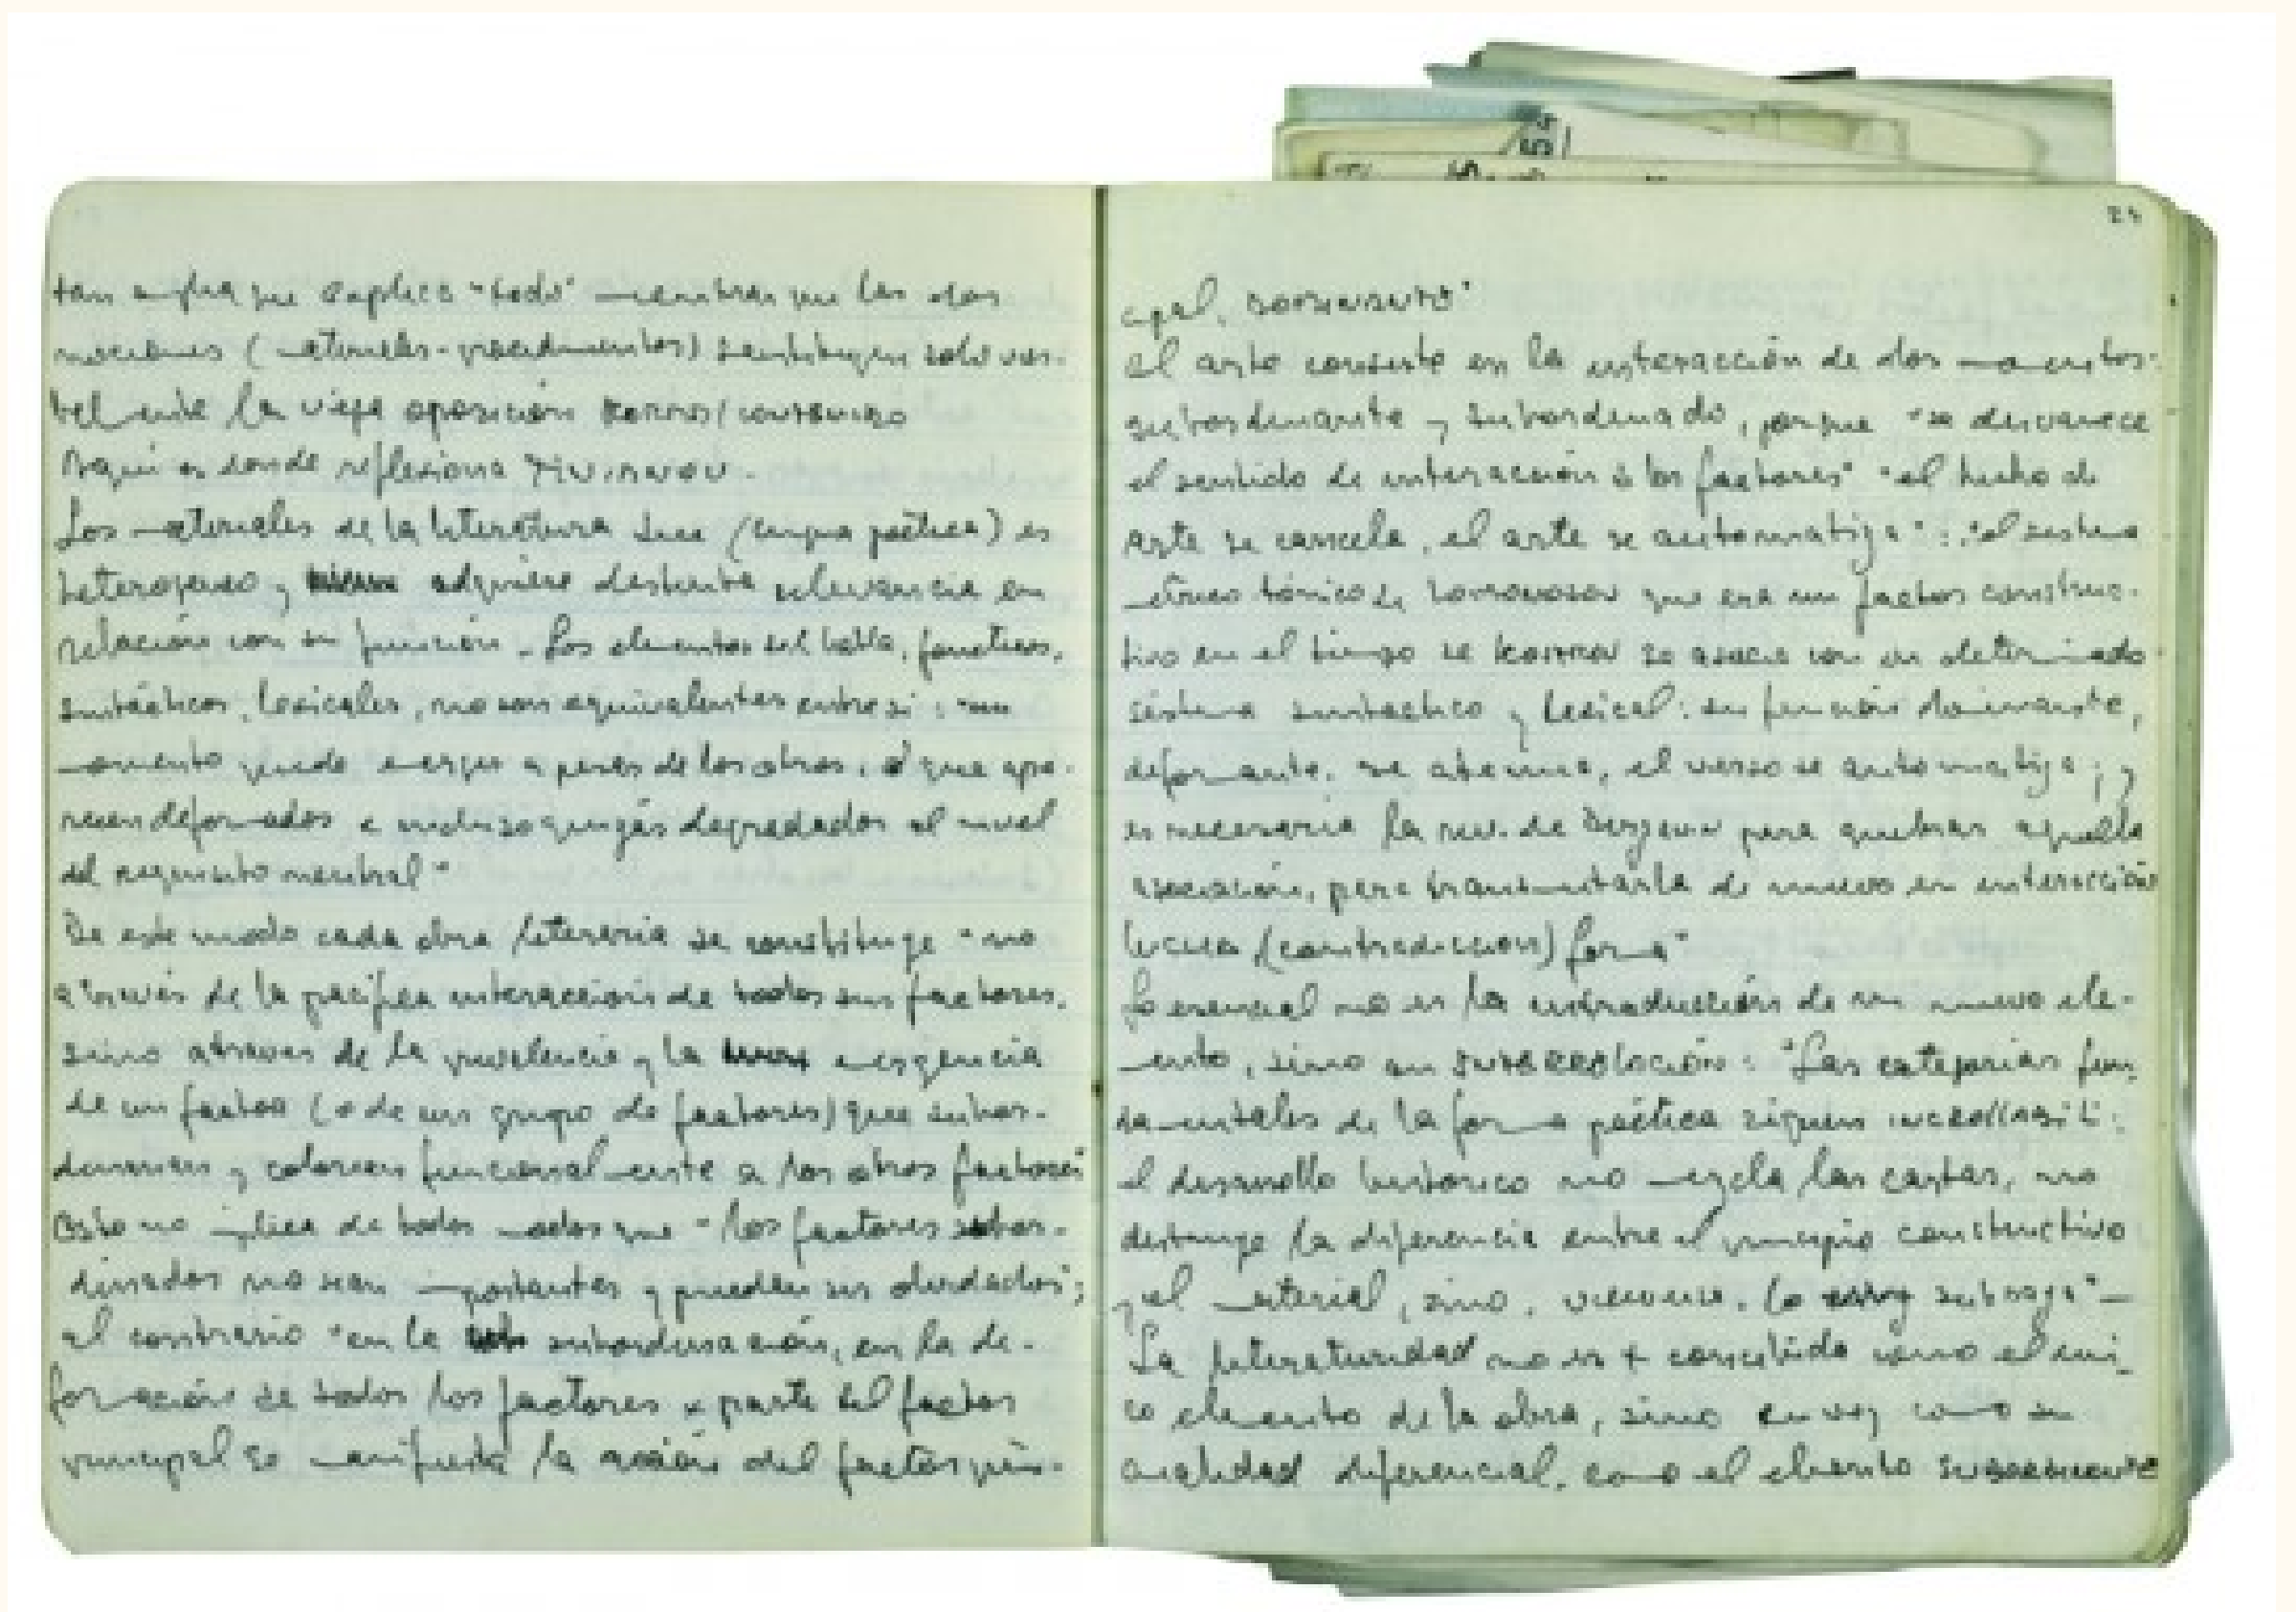 tan amplia que explica "todo" mientras que las dos
nociones (materiales-procedimientos) sustituyen solo
la vieja oposición FORMA/CONTENIDO
Aquí es donde reflexiona
Los materiales de la literatura dice (lengua poética) es
heterogeneo y adquiere distinta relevancia en
relación con su función. Los elementos del habla, foneticos,
sintácticos, lexicales, no son equivalentes entre si: "un
momento puede emerger a pesar de los otros, que apa-
recen deformados e incluso quizás degradados al nivel
del requisito neutral"
De este modo cada obra literaria se constituye "no
a través de la pacífica interacción de todos sus factores,
sino a través de la prevalencia y la emergencia
de un factor (o de un grupo de factores) que subor-
dinan y colorean funcionalmente a los otros factores
Esto no implica de todos modos que "los factores subor-
dinados no sean importantes y pueden ser olvidados";
al contrario "en la subordinación, en la de-
formación de todos los factores x parte del factor
principal se manifiesta la acción del factor prin-
24
cipal, DOMINANTE"
el arte consiste en la interacción de dos momentos:
subordinante y subordinado, porque "se desvanece
el sentido de interacción de los factores" "el hecho de
arte se cancela, el arte se automatiza": "el sistema
métrico tónico de LOMONOSOV que era un factor construc-
tivo en el tiempo de KOSTROV se asocia con un determinado
sistema sintactico y lexical: su función dominante,
deformante, se atenua, el verso se automatiza; y
es necesaria la rev. de para quebrar aquella
asociación, para transmutarla de nuevo en interacción
lucha (contradiccion) forma"
Lo esencial no es la introducción de un nuevo ele-
mento, sino su INTERRELACIÓN: "Las categorias fun
damentales de la forma poética siguen
el desarrollo historico no mezcla las cartas, no
destruye la diferencia entre el principio constructivo
y el material, sino, viceversa, lo subraya"—
La literaturidad no es + concebida como el uni-
co elemento de la obra, sino en vez como su
cualidad diferencial, como el elemento